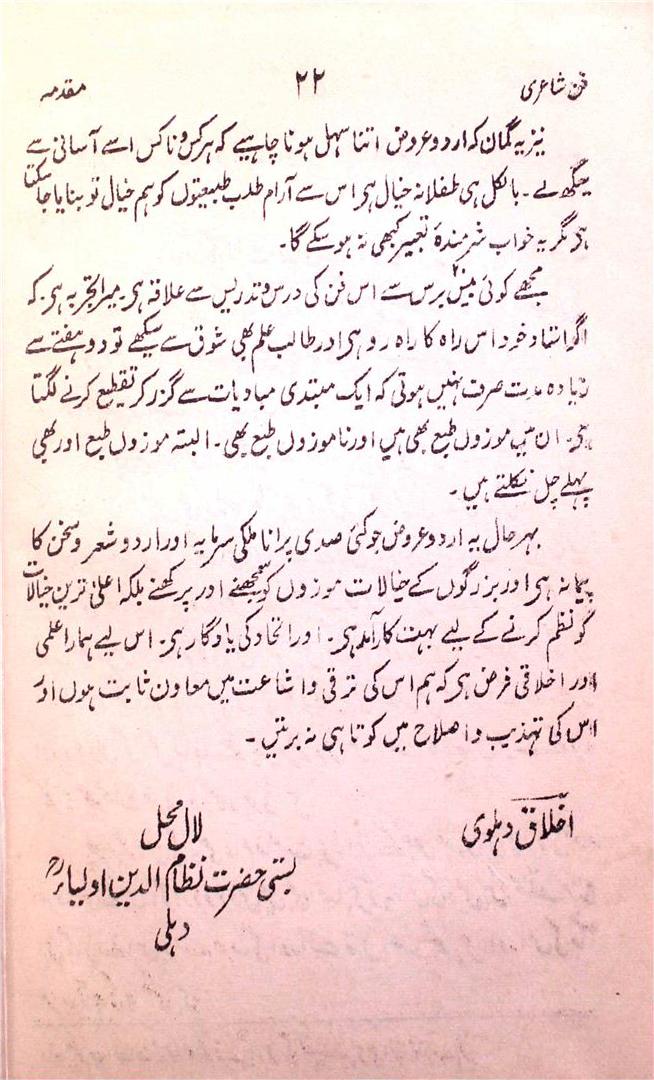 فن شاعری ۲۲ مقدمہ
نیز یہ گمان کہ اردو عروض اتنا سہل ہونا چاہیے کہ ہرکس و ناکس اسے آسانی سے
سیکھ لے۔ بالکل ہی طفلانہ خیال ہی اس سے آرام طلب طبیعتوں کو ہم خیال تو بنایا جا سکتا
ہی مگر یہ خواب شرمندۂ تعبیر کبھی نہ ہوسکے گا۔
مجھے کوئی بیس۲۰ برس سے اس فن کی درس و تدریس سے علاقہ ہی۔ میرا تجربہ ہی۔ کہ
اگر استاد خود اس راہ کا راہ رو ہی اور طالب علم بھی شوق سے سیکھے تو دو ہفتے سے
زیادہ مدت صرف نہیں ہوتی کہ ایک مبتدی مبادیات سے گزر کر تقطیع کرنے لگتا
ہی۔ ان میں موزوں طبع بھی ہیں اور ناموزوں طبع بھی۔ البتہ موزوں طبع اور بھی
پہلے چل نکلتے ہیں۔
بہر حال یہ اردو عروض جو کئی صدی پرانا ملکی سرمایہ اور اردو شعر و سخن کا
پیمانہ ہی اور بزرگوں کے خیالات موزوں کو سمجھنے اور پرکھنے بلکہ اعلیٰ ترین خیالات
کو نظم کرنے کے لیے بہت کارآمد ہی۔ اور اتحاد کی یادگار ہی۔ اس لیے ہمارا علمی
اور اخلاقی فرض ہی کہ ہم اس کی ترقی و اشاعت میں معاون ثابت ہوں اور
اس کی تہذیب و اصلاح میں کوتاہی نہ برتیں۔
اخلاق دہلوی
لال محل
بستی حضرت نظام الدین اولیاءؒ
دہلی